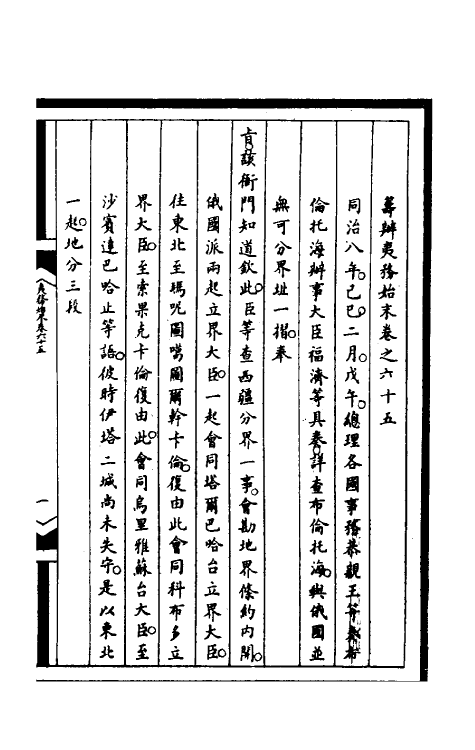 籌辦夷務始末卷之六十五
同治八年。己巳。二月。戊午。總理各國事務恭親王等奏。布
倫托海辦事大臣福濟等具奏。詳查布倫托海。與俄國並
無可分界址一摺。奉
旨。該衙門知道。欽此。臣等查西疆分界一事。會勘地界條約內開。
俄國派兩起立界大臣。一起會同塔爾巴哈台立界大臣。
往東北至瑪呢圖噶圖爾幹卡倫。復由此會同科布多立
界大臣。至索果克卡倫。復由此。會同烏里雅蘇台大臣。至
沙賓達巴哈止等語。彼時伊塔二城尚未失守。是以東北
一起。地分三段
夷務始末卷六十五
一